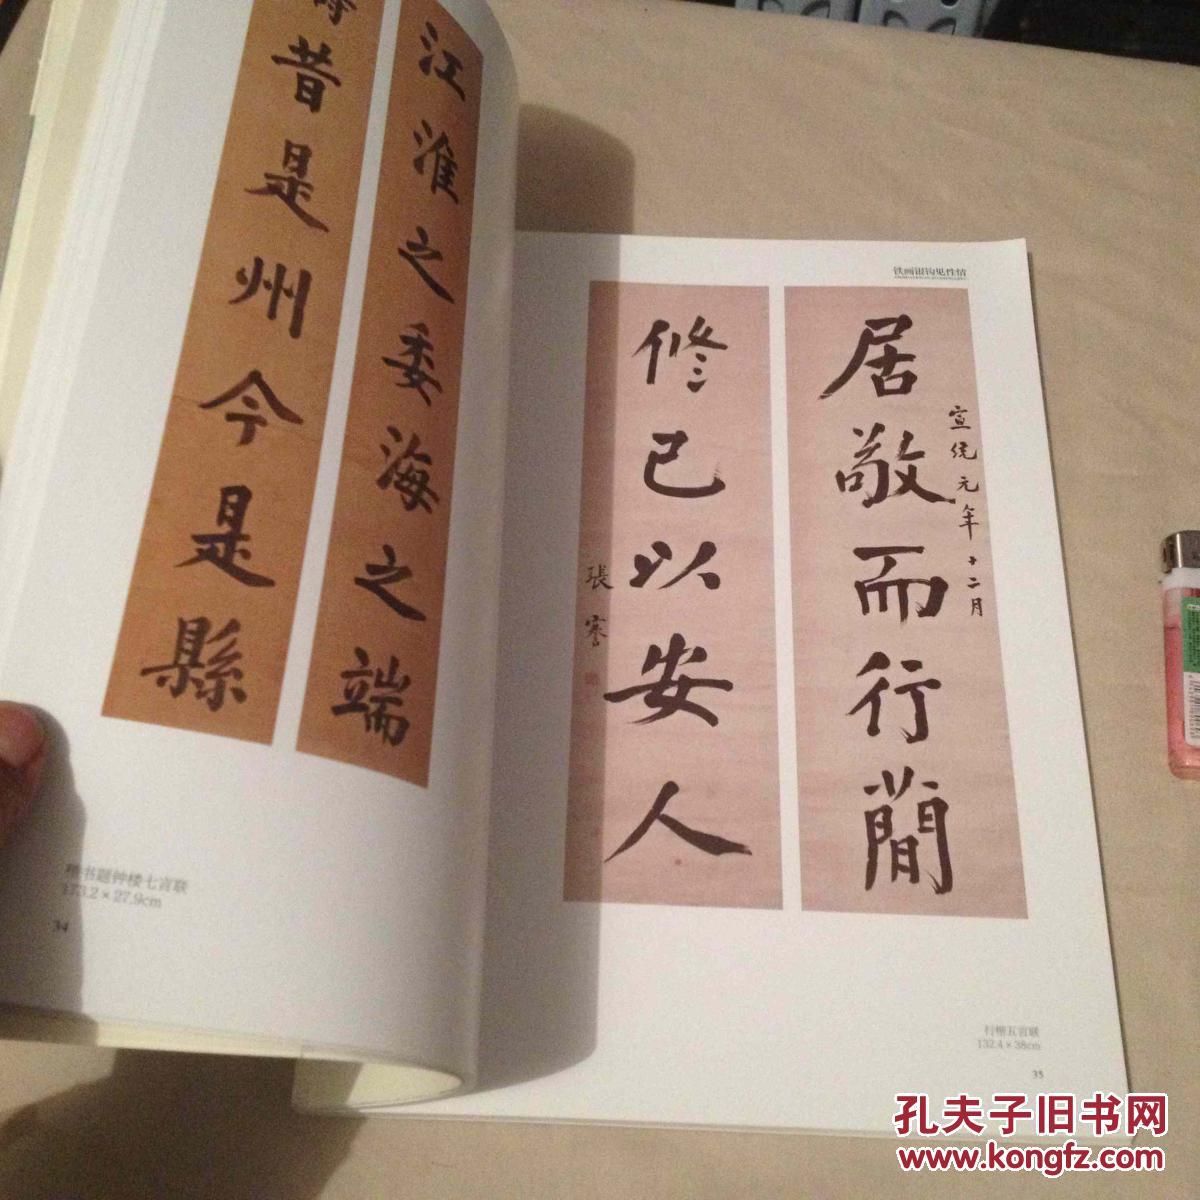 江淮之委海之端
昔是州今是縣
楷书题钟楼七言联
173.2×27.9cm
34
铁画银钩见性情
居敬而行簡
宣統元年十二月
修己以安人
張謇
行楷五言联
132.4×38cm
35
孔夫子旧书网
www.kongfz.com